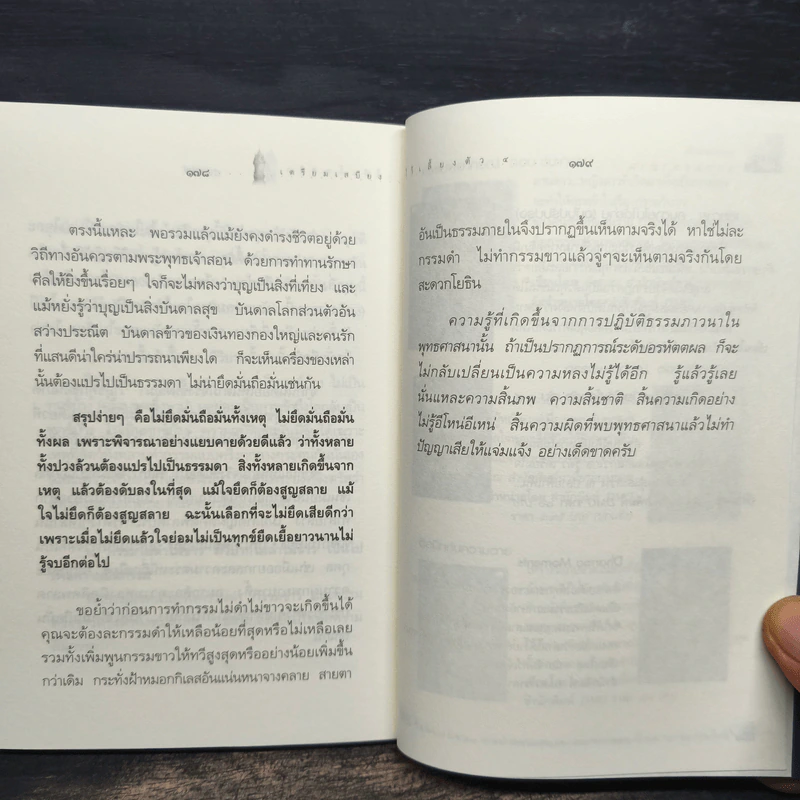 ๑๗๘
เตรียมเสบียง
ตรงนี้แหละ พอรวมแล้วแม้ยังคงดำรงชีวิตอยู่ด้วย
วิถีทางอันควรตามพระพุทธเจ้าสอน ด้วยการทำทานรักษา
ศีลให้ยิ่งขึ้นเรื่อยๆ ใจก็จะไม่หลงว่าบุญเป็นสิ่งที่เที่ยง และ
แม้หยั่งรู้ว่าบุญเป็นสิ่งบันดาลสุข บันดาลโลกส่วนตัวอัน
สว่างประณีต บันดาลข้าวของเงินทองกองใหญ่และคนรัก
ที่แสนดีน่าใคร่น่าปรารถนาเพียงใด ก็จะเห็นเครื่องของเหล่า
นั้นต้องแปรไปเป็นธรรมดา ไม่น่ายึดมั่นถือมั่นเช่นกัน
สรุปง่ายๆ คือไม่ยึดมั่นถือมั่นทั้งเหตุ ไม่ยึดมั่นถือมั่น
ทั้งผล เพราะพิจารณาอย่างแยบคายด้วยดีแล้ว ว่าทั้งหลาย
ทั้งปวงล้วนต้องแปรไปเป็นธรรมดา สิ่งทั้งหลายเกิดขึ้นจาก
เหตุ แล้วต้องดับลงในที่สุด แม้ใจยึดก็ต้องสูญสลาย แม้
ใจไม่ยึดก็ต้องสูญสลาย ฉะนั้นเลือกที่จะไม่ยึดเสียดีกว่า
เพราะเมื่อไม่ยึดแล้วใจย่อมไม่เป็นทุกข์ยืดเยื้อยาวนานไม่
รู้จบอีกต่อไป
ขอย้ำว่าก่อนการทำกรรมไม่ดำไม่ขาวจะเกิดขึ้นได้
คุณจะต้องละกรรมดำให้เหลือน้อยที่สุดหรือไม่เหลือเลย
รวมทั้งเพิ่มพูนกรรมขาวให้ทวีสูงสุดหรืออย่างน้อยเพิ่มขึ้น
กว่าเดิม กระทั่งฝ้าหมอกกิเลสอันแน่นหนาจางคลาย สายตา
ไว้เลี้ยงตัว ๔
๑๗๙
อันเป็นธรรมภายในจึงปรากฏขึ้นเห็นตามจริงได้ หาใช่ไม่ละ
กรรมดำ ไม่ทำกรรมขาวแล้วจู่ๆจะเห็นตามจริงกันโดย
สะดวกโยธิน
ความรู้ที่เกิดขึ้นจากการปฏิบัติธรรมภาวนาใน
พุทธศาสนานั้น ถ้าเป็นปรากฏการณ์ระดับอรหัตตผล ก็จะ
ไม่กลับเปลี่ยนเป็นความหลงไม่รู้ได้อีก รู้แล้วรู้เลย
นั่นแหละความสิ้นภพ ความสิ้นชาติ สิ้นความเกิดอย่าง
ไม่รู้อีโหน่อีเหน่ สิ้นความผิดที่พบพุทธศาสนาแล้วไม่ทำ
ปัญญาเสียให้แจ่มแจ้ง อย่างเด็ดขาดครับ